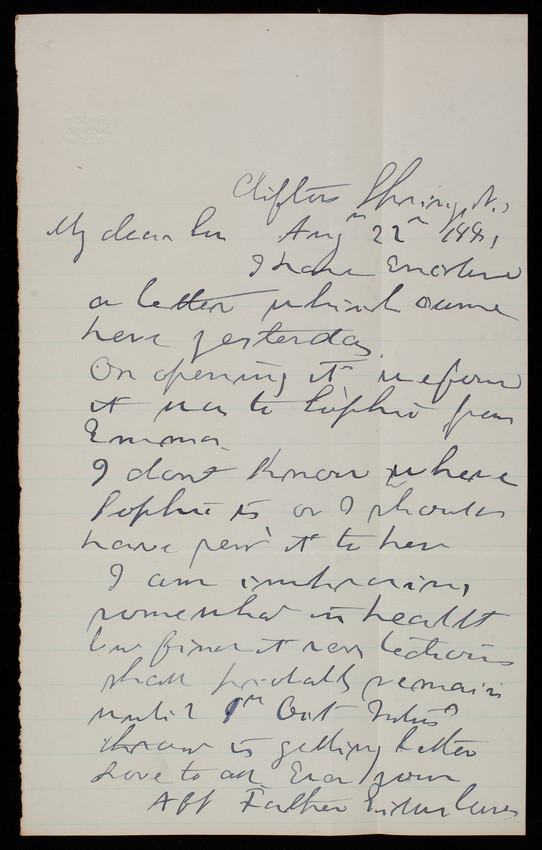 Clifton Springs, N.
My dear Son Aug 22nd 1881
I have Enclosed
a letter which came
here yesterday
On opening it we found
it was to Sophie from
Emma.
I dont Know where
Sophie is or I should
have sent it to her
I am improving
somewhat in health
but find it very tedious
shall probably remain
until 1st Oct
throat is getting better
Love to all Ever your
Aff Father